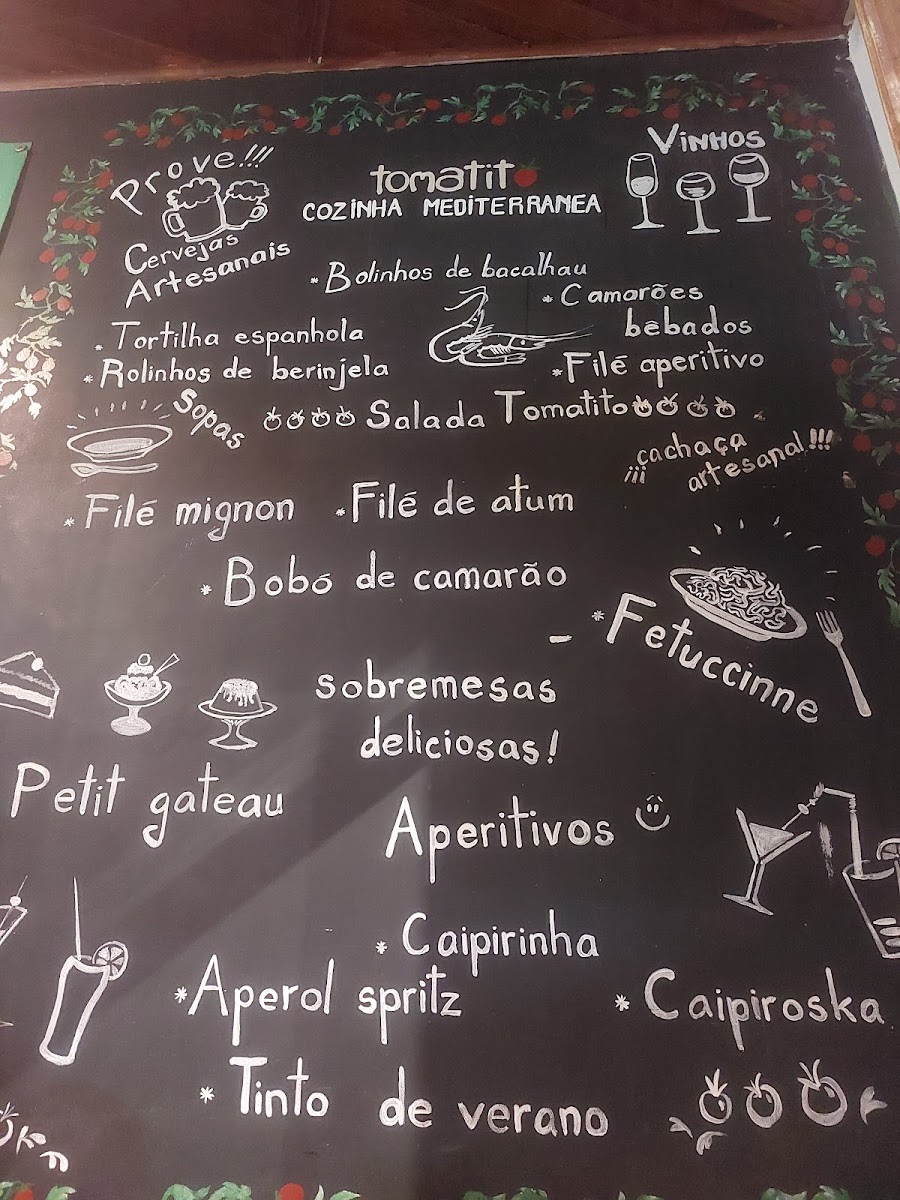 Prove!!!
Cervejas
Artesanais
tomatito
COZINHA MEDITERRANEA
VINHOS
* Bolinhos de bacalhau
* Camarões
bêbados
* Tortilha espanhola
* Rolinhos de berinjela
* Filé aperitivo
Sopas
Salada Tomatito
¡¡¡cachaça
artesanal!!!
* Filé mignon * Filé de atum
* Bobó de camarão
- * Fetuccinne
sobremesas
deliciosas!
Petit gateau
Aperitivos
* Caipirinha
* Aperol spritz
* Caipiroska
* Tinto de verano